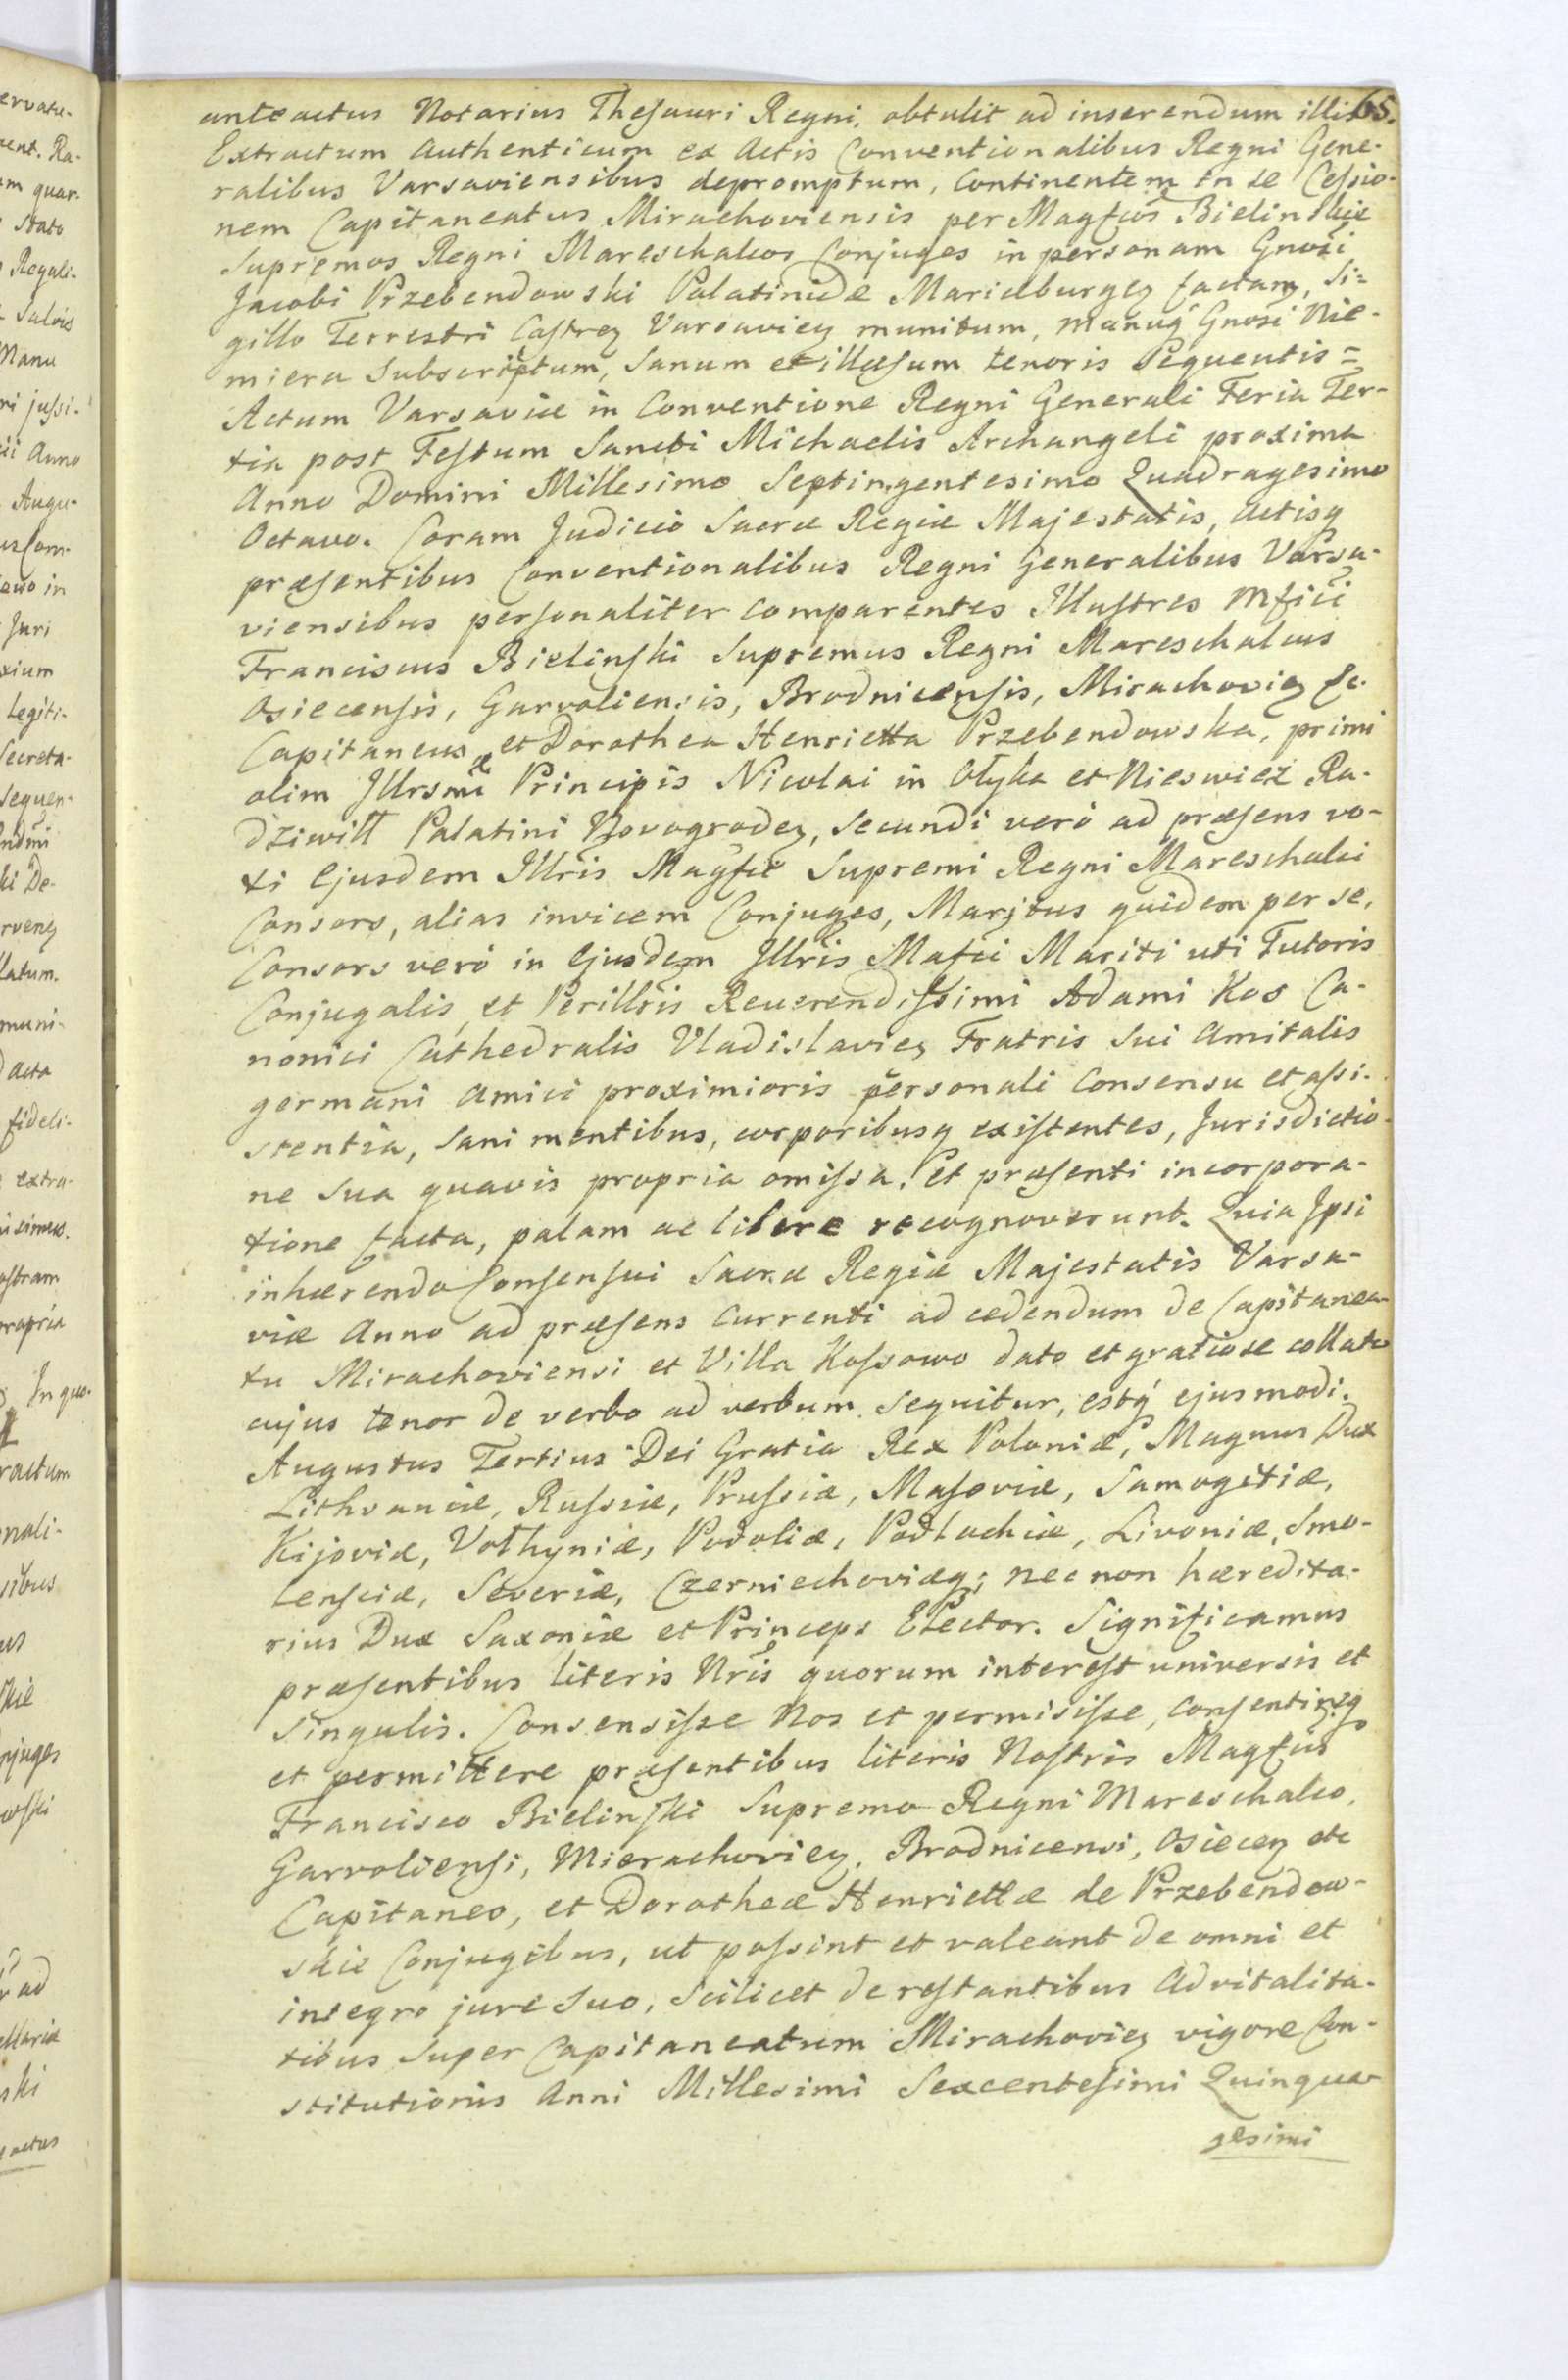 65.
anteactus Notarius Thesauri Regni, obtulit ad inserendum illis
Extractum Authenticum ex Actis Conventionalibus Regni Gene-
ralibus Varsaviensibus depromptum, Continentem in se Cessio-
nem Capitaneatus Mirachoviensis per Magfcos Bielinskie
Supremos Regni Mareschalcos Conjuges in personam Gnosi
Jacobi Przebendowski Palatinidæ Marieburgen factam, Si=
gillo Terrestri Castren Varsavien munitum, manuq Gnosi Nie-
miera Subscriptum, Sanum et illæsum tenoris Sequentis=
Actum Varsaviæ in Conventione Regni Generali Feria Ter-
tia post Festum Sancti Michaelis Archangeli proxima
Anno Domini Millesimo Septingentesimo Quadragesimo
Octavo. Coram Judicio Sacræ Regiæ Majestatis, Actisq
præsentibus Conventionalibus Regni Generalibus Varsa-
viensibus personaliter comparentes Illustres Mfici
Franciscus Bielinski Supremus Regni Mareschalcus
Osiecensis, Garvoliensis, Brodnicensis, Mirachovien &c.
Capitaneus, et Dorothea Henrietta Przebendowska, primi
olim Illrsmi Principis Nicolai in Olyka et Nieswiez Ra-
dziwill Palatini Novogroden, Secundi verò ad præsens vo-
ti Ejusdem Illris Magfci Supremi Regni Mareschalci
Consors, alias invicem Conjuges, Maritus quidem per se,
Consors verò in Ejusdem Illris Mafci Mariti uti Tutoris
Conjugalis, et Perillris Reverendissimi Adami Kos Ca-
nonici Cathedralis Vladislavien Fratris Sui Amitalis
germani Amici proximioris personali Consensu et assi-
stentia, Sani mentibus, corporibusq existentes, Jurisdictio-
ne Sua quavis propria omissa, et præsenti incorpora-
tione facta, palam ac libere recognoverunt. Quia Ipsi
inhærendo Consensui Sacræ Regiæ Majestatis Varsa-
viæ Anno ad præsens Currenti ad cedendum de Capitanea-
tu Mirachoviensi et Villa Kossowo dato et gratiose collato
cujus tenor de verbo ad verbum sequitur, estq ejusmodi.
Augustus Tertius Dei Gratia Rex Poloniæ, Magnus Dux
Lithvaniæ, Russiæ, Prussiæ, Masoviæ, Samogitiæ,
Kijoviæ, Volhyniæ, Podoliæ, Podlachiæ, Livoniæ, Smo-
lensciæ, Severiæ, Czerniechoviæq; nec non hæredita-
rius Dux Saxoniæ et Princeps Elector. Significamus
præsentibus literis Nris quorum interest universis et
Singulis. Consensisse Nos et permisisse, consentireq
et permittere præsentibus literis Nostris Magfcis
Francisco Bielinski Supremo Regni Mareschalco,
Garvoliensi, Mierachovien, Brodnicensi, Osiecen etc
Capitaneo, et Dorotheæ Henriettæ de Przebendow-
skie Conjugibus, ut possint et valeant de omni et
integro jure Suo, Scilicet de restantibus Advitalita-
tibus Super Capitaneatum Mirachovien vigore Con-
stitutionis Anni Millesimi Sexcentesimi Quinqua-
gesimi